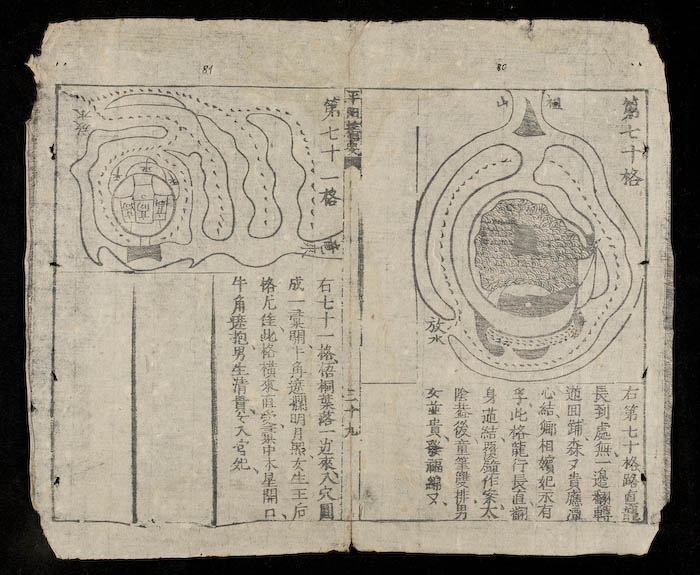 80
第七十格
祖
山
放水
右第七十格路直龍
長到處無一邊翻轉
遊回鋪森又貴應
心結鄉相嬪妃永有
孚此格龍行長直翻
身逆結覆鐘作案太
陰蓋後童筆雙排男
女並貴發福綿又
平陽
三十九
81
第七十一格
放水
右七十一格悟桐葉落一边來入穴圓
成一開牛角遮闌明月熙女生王后
格尤佳此格橫來直受中木星開口
牛角遶抱男生清貴女入宮妃